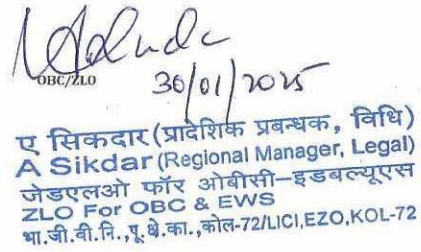 OBC/ZLO
30/01/2025
ए सिकदार (प्रादेशिक प्रबन्धक, विधि)
A Sikdar (Regional Manager, Legal)
जेडएलओ फॉर ओबीसी-इडबल्यूएस
ZLO For OBC & EWS
भा.जी.बी.नि.,पू.क्षे.का.,कोल-72/LICI,EZO,KOL-72